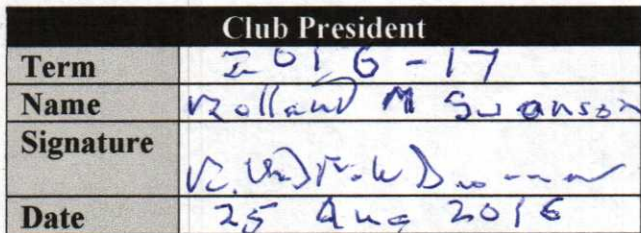 Club President
Term 2016-17
Name Rolland M Swanson
Signature
Date 25 Aug 2016